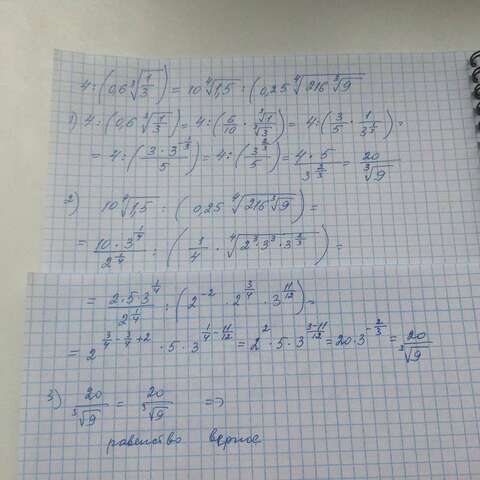 4:(0,6∛(1/3)) = 10⁴√1,5 : (0,25 ⁴√(216∛9)
1) 4:(0,6∛(1/3)) = 4:(6/10 · ∛1/∛3) = 4:(3/5 · 1/3^(1/3)) =
= 4:(3·3^(-1/3)/5) = 4:(3^(2/3)/5) = 4·5/3^(2/3) = 20/∛9
2) 10⁴√1,5 : (0,25 ⁴√(216∛9)) =
= 10·3^(1/4)/2^(1/4) : (1/4 · ⁴√(2³·3³·3^(2/3))) =
= 2·5·3^(1/4)/2^(1/4) : (2^(-2) · 2^(3/4) · 3^(11/12)) =
= 2^(3/4-3/4+2) · 5·3^(1/4-11/12) = 2²·5·3^((3-11)/12) = 20·3^(-2/3) = 20/∛9
3) 20/∛9 = 20/∛9 =>
равенство верное